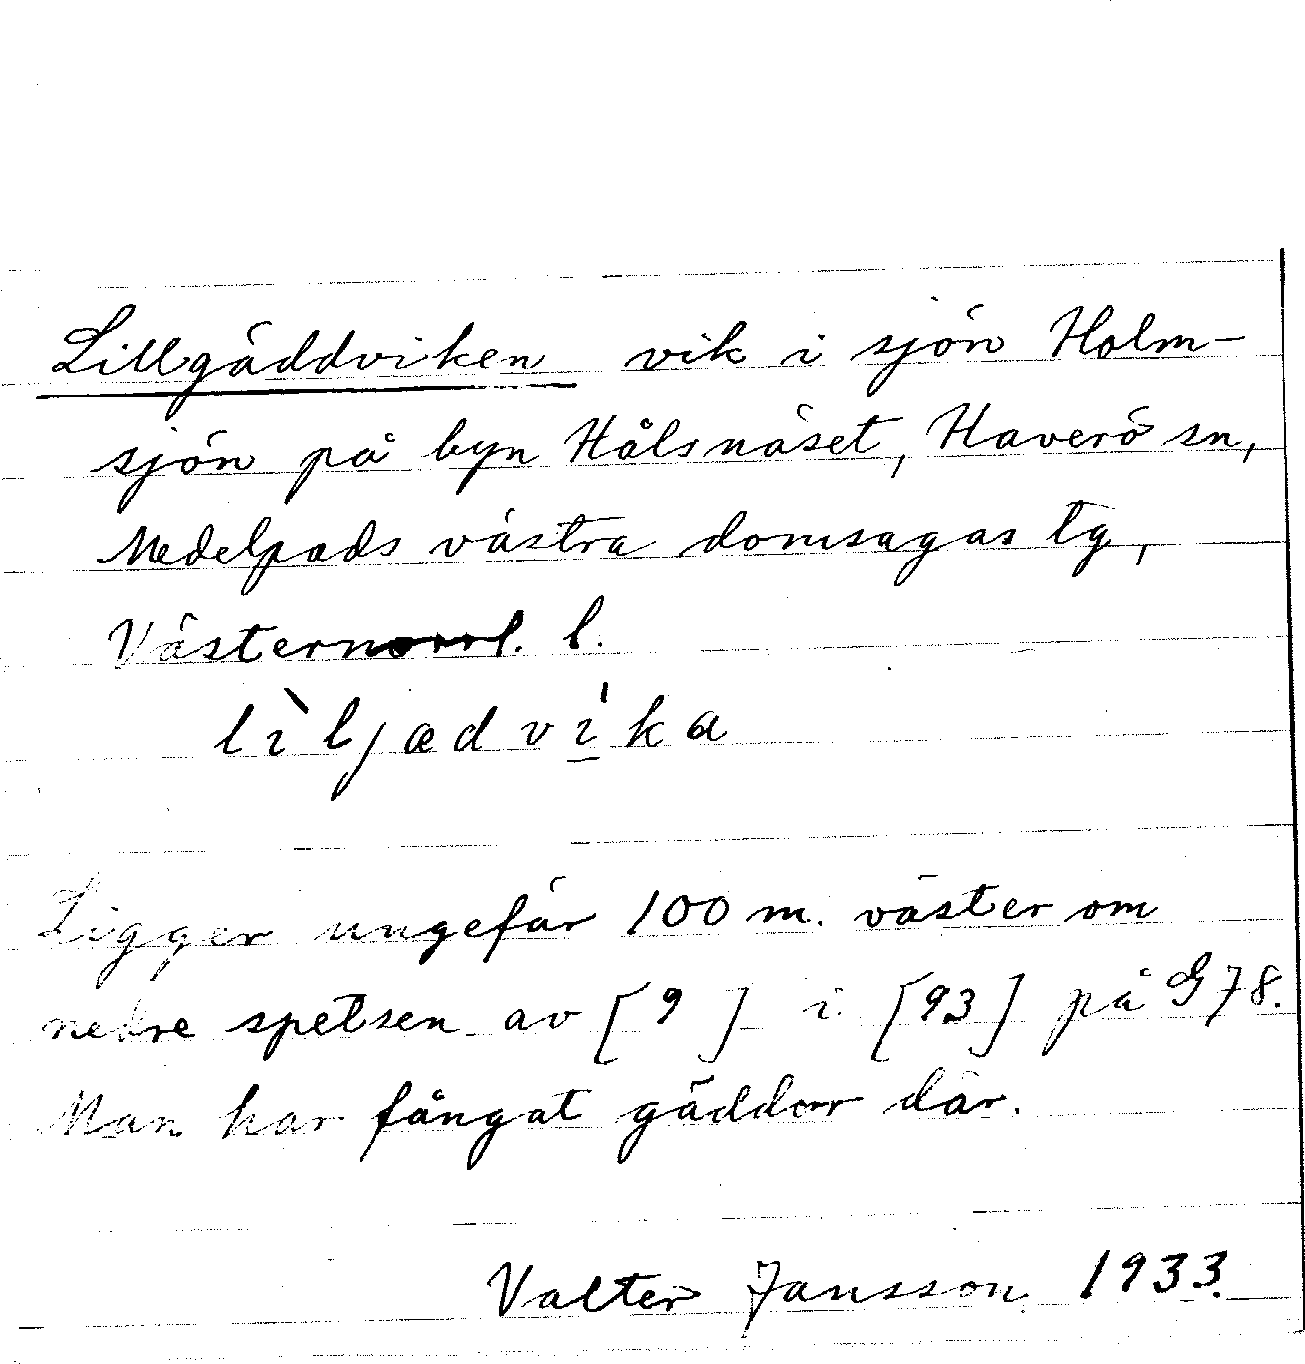 Lillgäddviken vik i sjön Holm-
sjön på byn Hålsnäset, Haverö sn,
Medelpads västra domsagas tg,
Västernorrl. l.
lìljædví̲ka
Ligger ungefär 100 m. väster om
nedre spetsen av [9] i [93] på G78.
Man har fångat gäddor där.
Valter Jansson 1933.